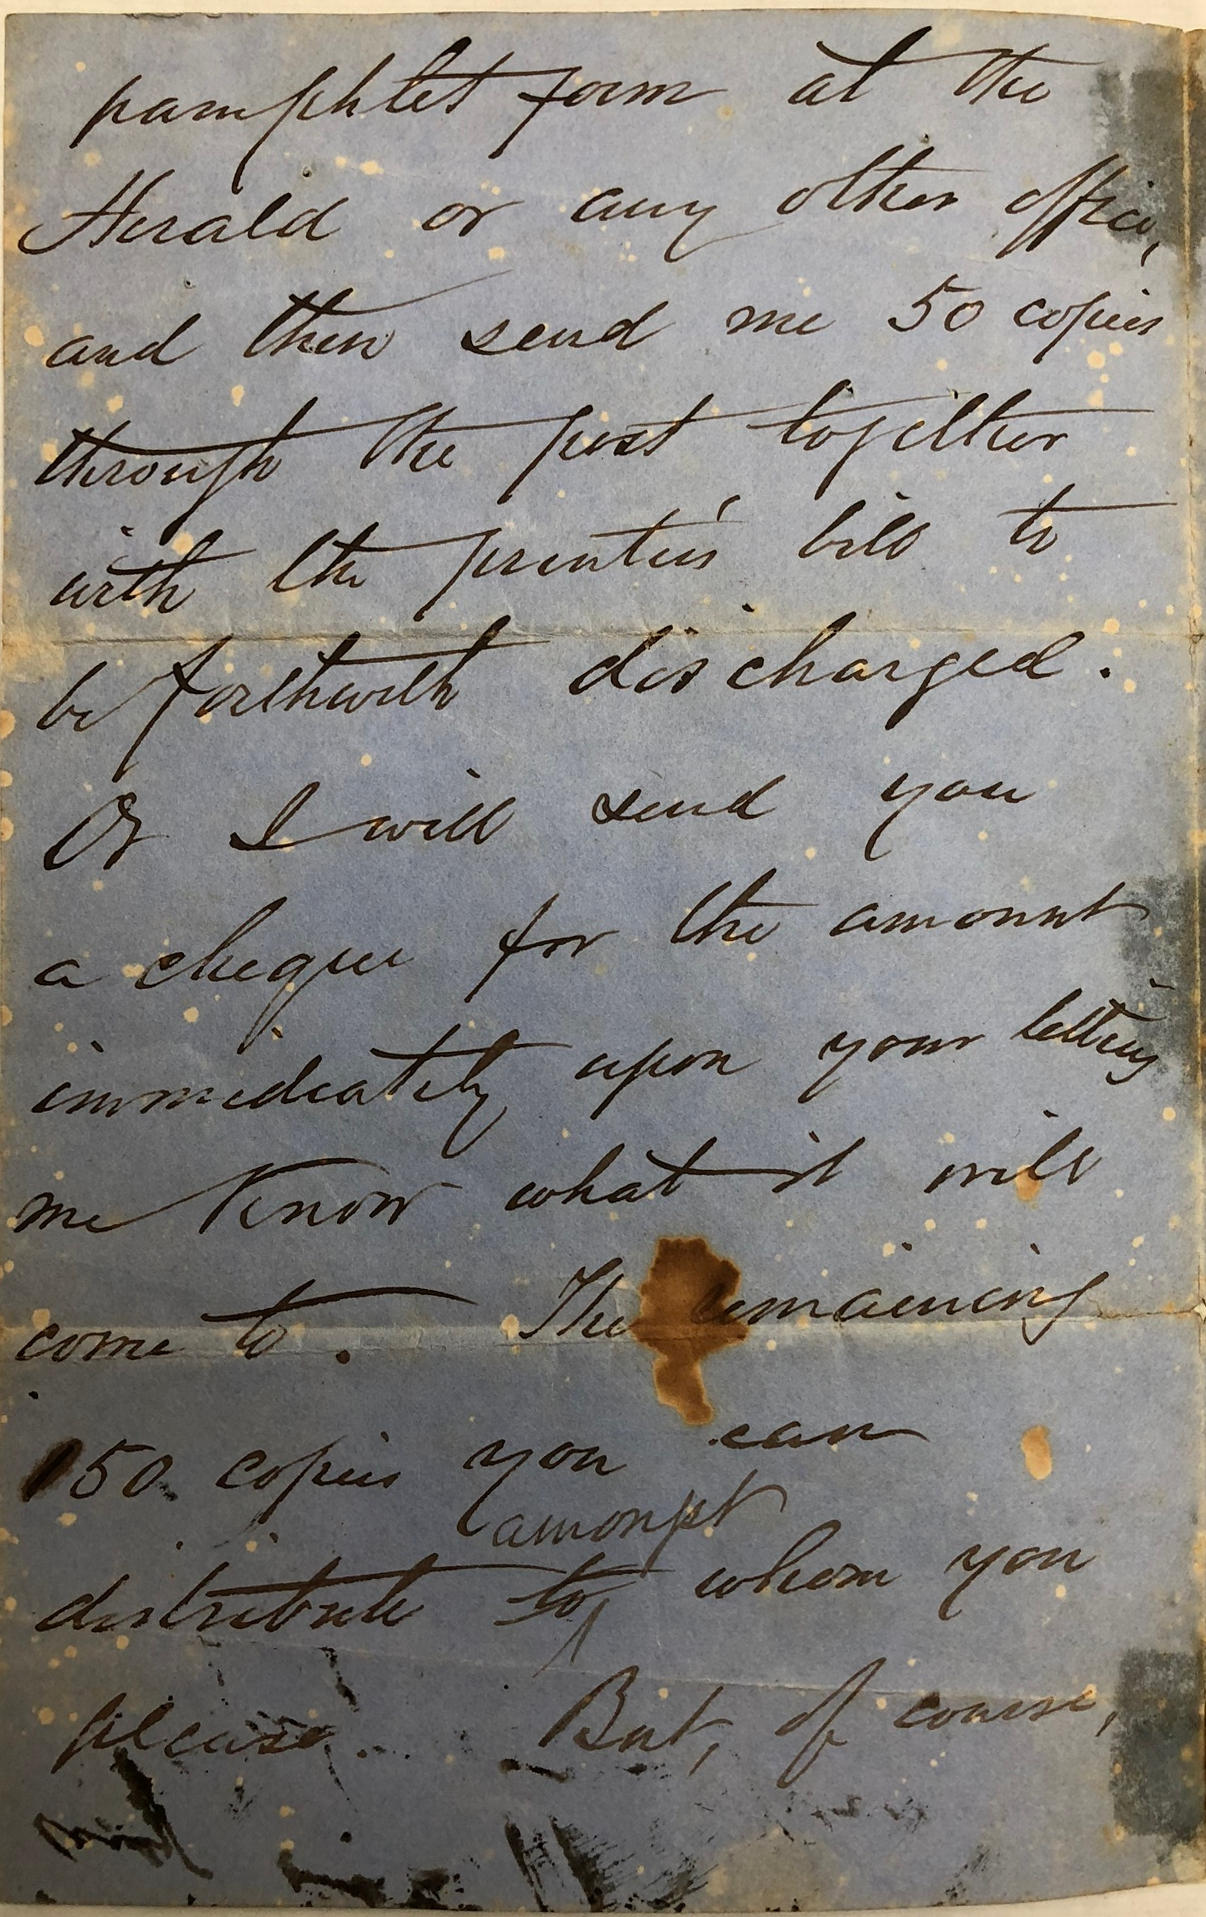 pamphlet form at the
Herald or any other office,
and then send me 50 copies
through the post together
with the printer's bill to
be forthwith discharged.
Or I will send you
a cheque for the amount
immediately upon your letting
me know what it will
come to. The remaining
150 copies you can
amongst
distribute to whom you
please. But, of course,